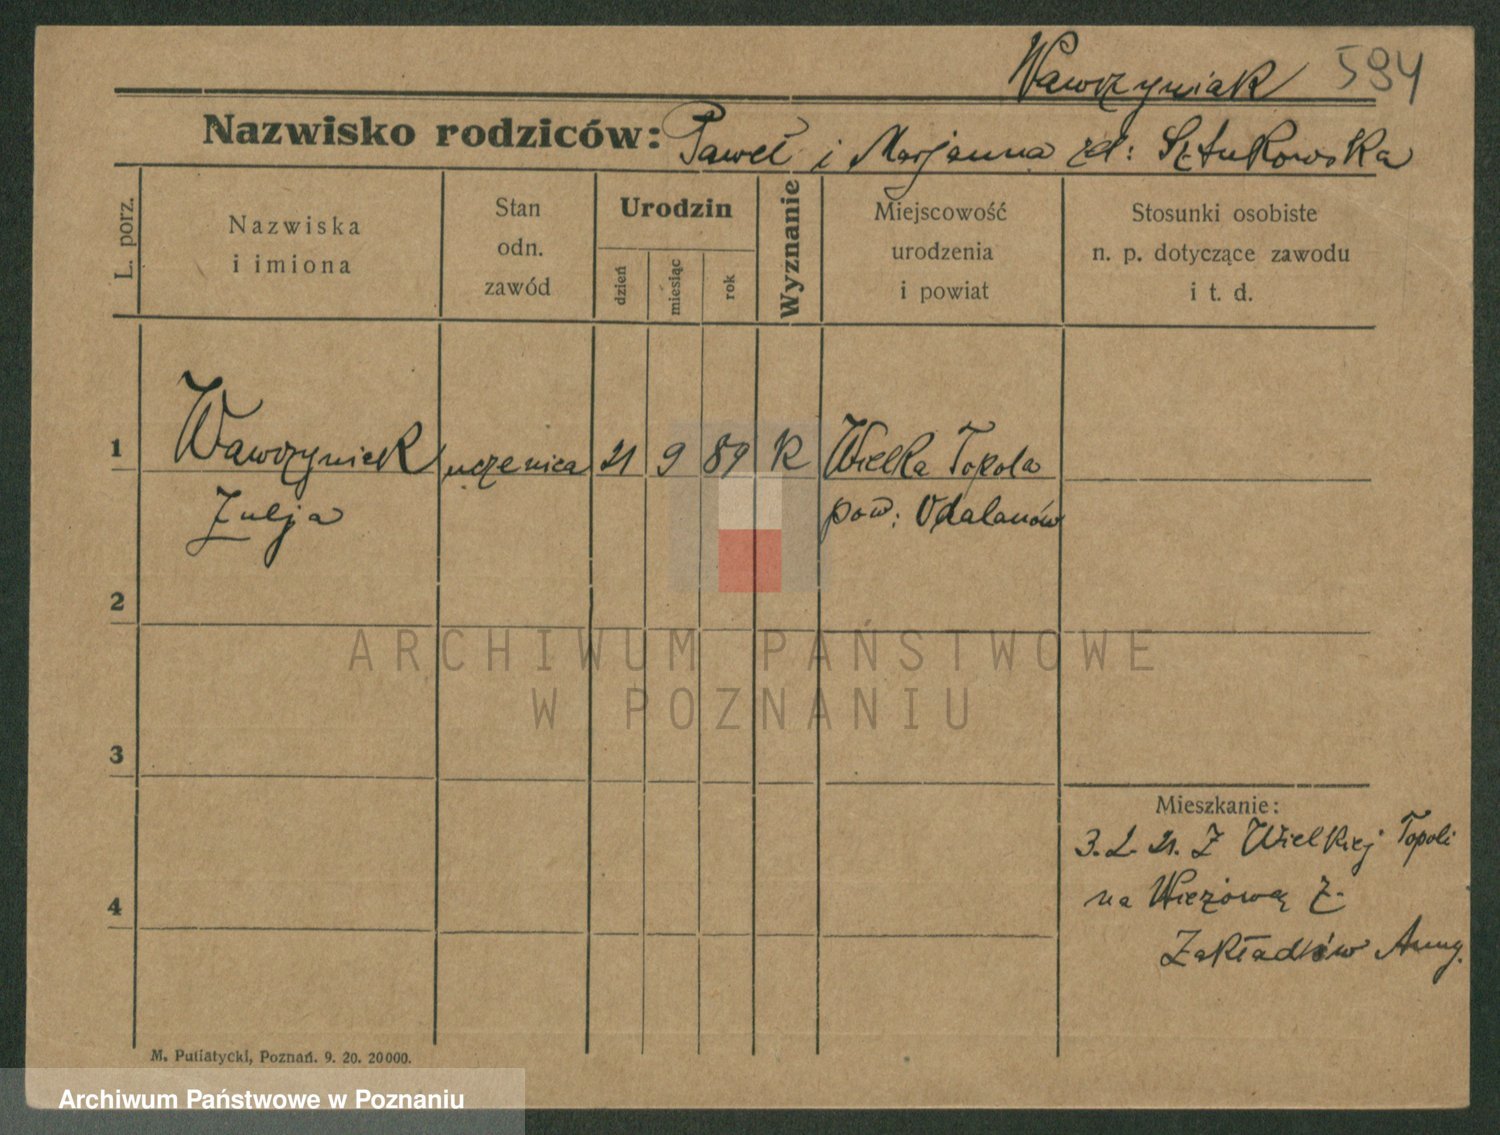 Wawrzyniak 594
Nazwisko rodziców: Paweł i Marjanna zd: Sztukowska
L. porz.
Nazwiska
i imiona
Stan
odn.
zawód
Urodzin
dzień
miesiąc
rok
Wyznanie
Miejscowość
urodzenia
i powiat
Stosunki osobiste
n. p. dotyczące zawodu
i t. d.
1 Wawrzyniak uczenica 21 9 89 K Wielka Topola
Julja pow: Odalanów
2
ARCHIWUM PAŃSTWOWE
W POZNANIU
3
Mieszkanie:
3. 2. 21. Z Wielkiej Topoli
4
na Wieżową 7.
Zakładów Anny.
M. Putiatycki, Poznań. 9. 20. 20000.
Archiwum Państwowe w Poznaniu